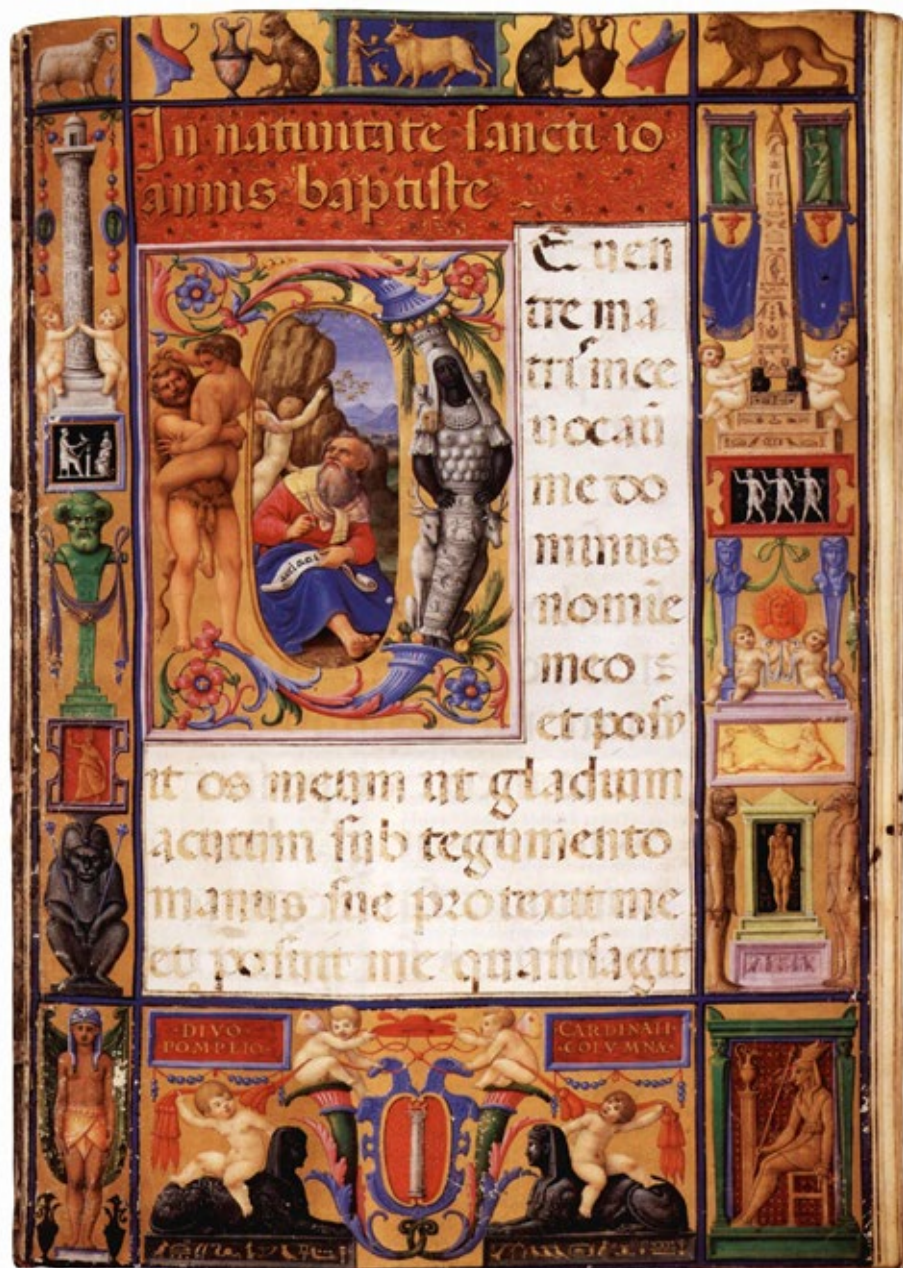 In natiuitate sancti io
annis baptiste
E uen
tre ma
tris mee
uocauit
me do
minus
nomīe
meo :
et posu
it os meum ut gladium
acutum sub tegumento
manus sue protexit me
et posuit me quasi sagit
·DIVO·
POMPEIO·
CARDINALI·
·COLVMNÆ·